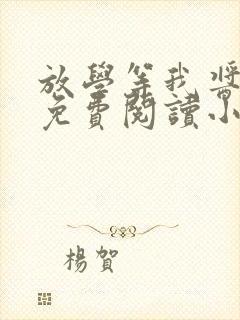 放學等我 將
免費閱讀小
楊賀